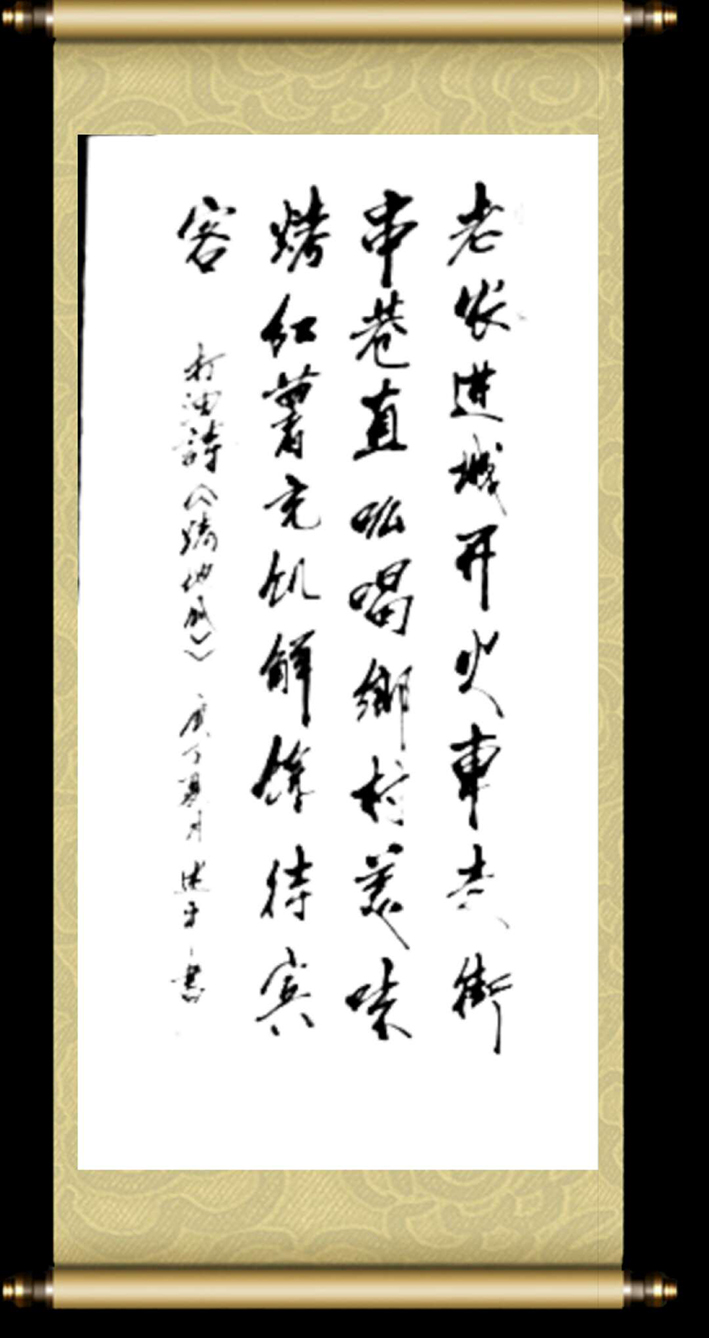 老农进城开火车走街
串巷直吆喝鄉村美味
烤红薯充饥解馋待宾
客
打油詩《烤地瓜》 夏月 书